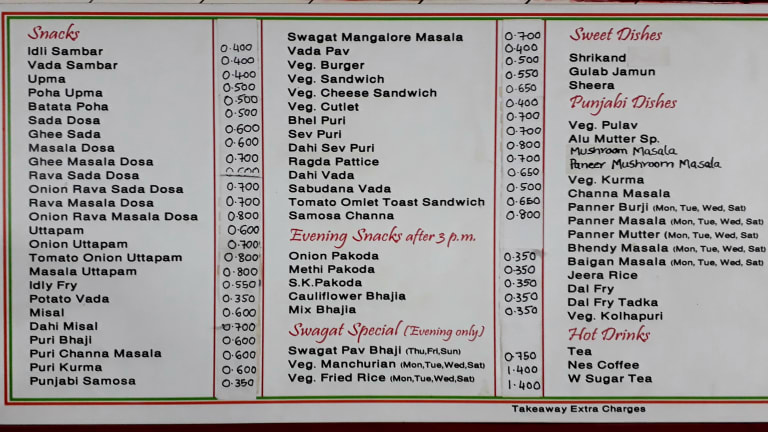 Snacks
Idli Sambar 0.400
Vada Sambar 0.400
Upma 0.400
Poha Upma 0.500
Batata Poha 0.500
Sada Dosa 0.500
Ghee Sada 0.600
Masala Dosa 0.600
Ghee Masala Dosa 0.700
Rava Sada Dosa
Onion Rava Sada Dosa 0.700
Rava Masala Dosa 0.700
Onion Rava Masala Dosa 0.800
Uttapam 0.600
Onion Uttapam 0.700
Tomato Onion Uttapam 0.800
Masala Uttapam 0.800
Idly Fry 0.550
Potato Vada 0.350
Misal 0.600
Dahi Misal 0.700
Puri Bhaji 0.600
Puri Channa Masala 0.600
Puri Kurma 0.600
Punjabi Samosa 0.350
Swagat Mangalore Masala 0.700
Vada Pav 0.400
Veg. Burger 0.500
Veg. Sandwich 0.550
Veg. Cheese Sandwich 0.650
Veg. Cutlet 0.400
Bhel Puri 0.700
Sev Puri 0.700
Dahi Sev Puri 0.800
Ragda Pattice 0.700
Dahi Vada 0.650
Sabudana Vada 0.500
Tomato Omlet Toast Sandwich 0.650
Samosa Channa 0.800
Evening Snacks after 3 p.m.
Onion Pakoda 0.350
Methi Pakoda 0.350
S.K.Pakoda 0.350
Cauliflower Bhajia 0.350
Mix Bhajia 0.350
Swagat Special (Evening only)
Swagat Pav Bhaji (Thu,Fri,Sun) 0.750
Veg. Manchurian (Mon,Tue,Wed,Sat) 1.400
Veg. Fried Rice (Mon,Tue,Wed,Sat) 1.400
Sweet Dishes
Shrikand
Gulab Jamun
Sheera
Punjabi Dishes
Veg. Pulav
Alu Mutter Sp.
Mushroom Masala
Paneer Mushroom Masala
Veg. Kurma
Channa Masala
Panner Burji (Mon, Tue, Wed, Sat)
Panner Masala (Mon, Tue, Wed, Sat)
Panner Mutter (Mon, Tue, Wed, Sat)
Bhendy Masala (Mon, Tue, Wed, Sat)
Baigan Masala (Mon, Tue, Wed, Sat)
Jeera Rice
Dal Fry
Dal Fry Tadka
Veg. Kolhapuri
Hot Drinks
Tea
Nes Coffee
W Sugar Tea
Takeaway Extra Charges